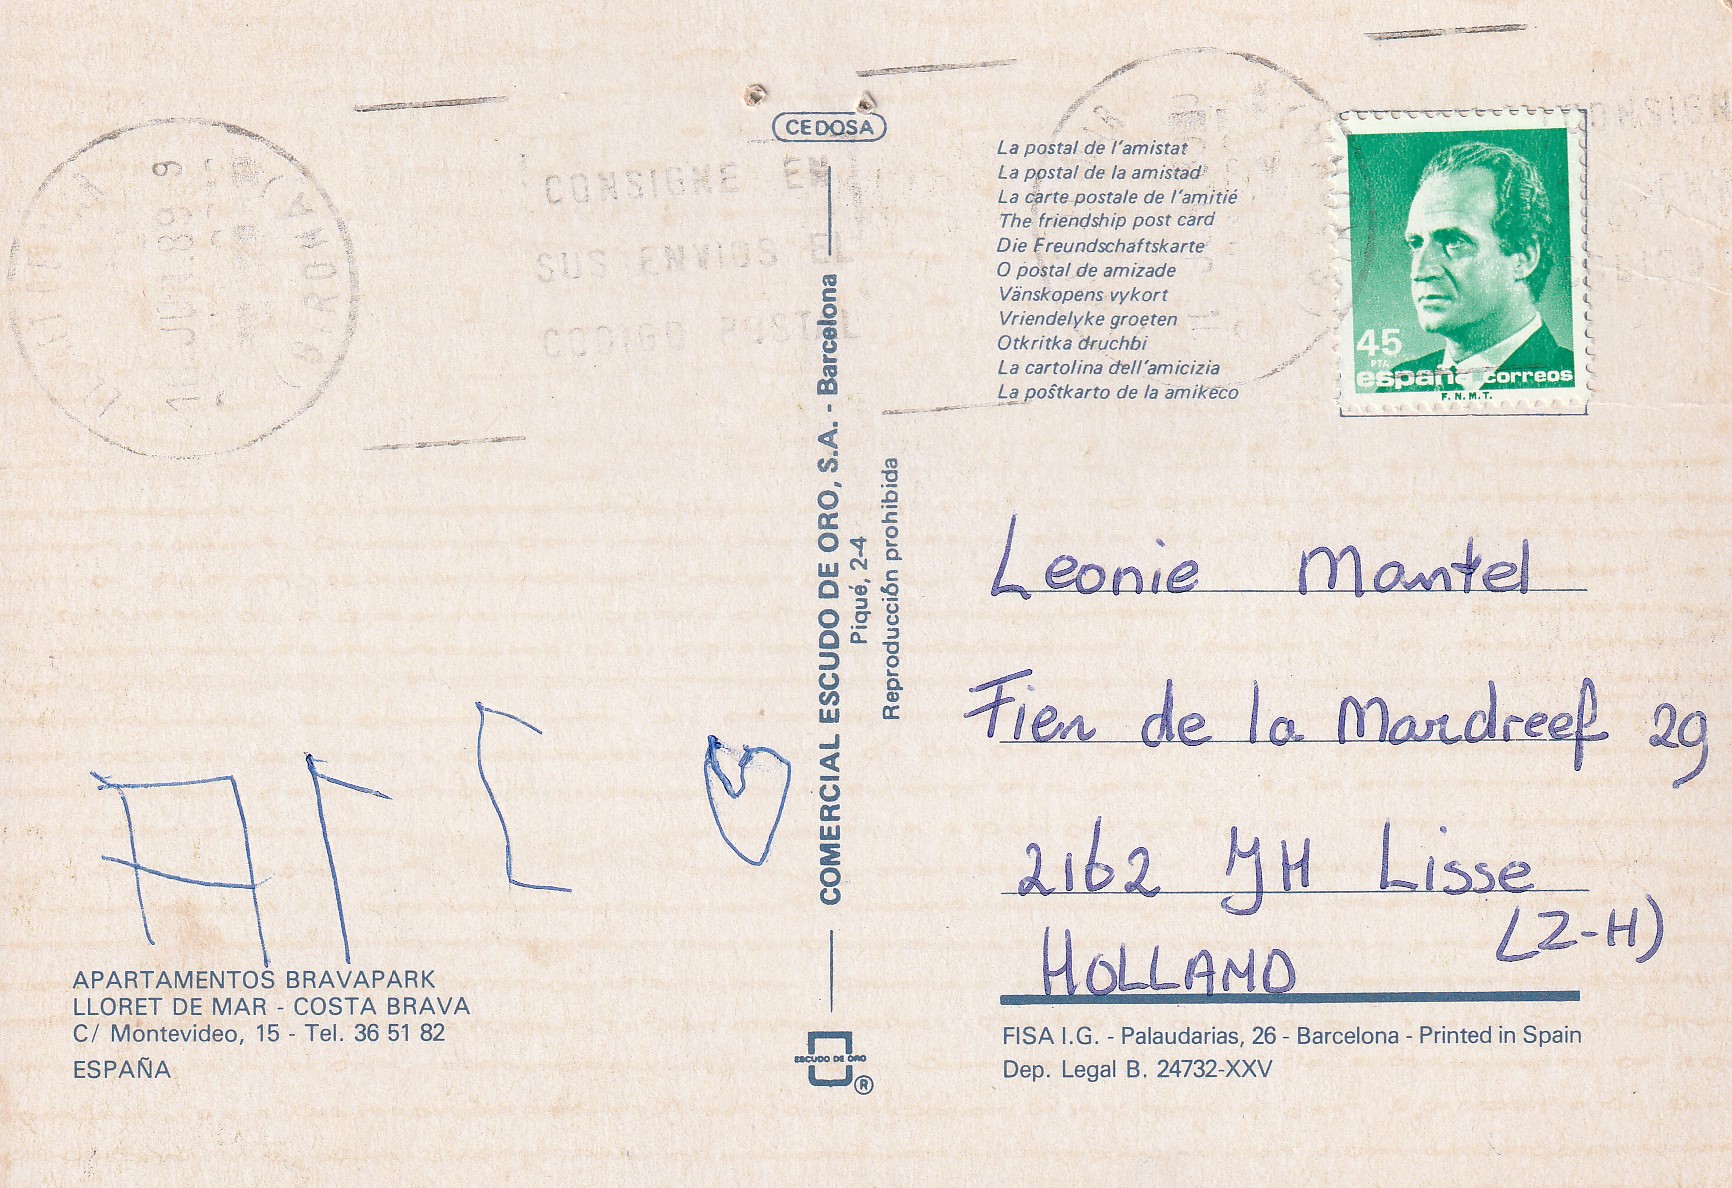 CEDOSA
CONSIGNE EN
SUS ENVIOS EL
CODIGO POSTAL
JUN.89
La postal de l'amistat
La postal de la amistad
La carte postale de l'amitié
The friendship post card
Die Freundschaftskarte
O postal de amizade
Vänskopens vykort
Vriendelyke groeten
Otkritka druchbi
La cartolina dell'amicizia
La poŝtkarto de la amikeco
45
PTA
españa correos
F.N.M.T.
CONSIGN
COMERCIAL ESCUDO DE ORO, S.A. - Barcelona
Piqué, 2-4
Reproducción prohibida
Leonie Mantel
Fien de la Mardreef 29
2162 JH Lisse
(Z-H)
HOLLAND
APARTAMENTOS BRAVAPARK
LLORET DE MAR - COSTA BRAVA
C/ Montevideo, 15 - Tel. 36 51 82
ESPAÑA
ESCUDO DE ORO
®
FISA I.G. - Palaudarias, 26 - Barcelona - Printed in Spain
Dep. Legal B. 24732-XXV